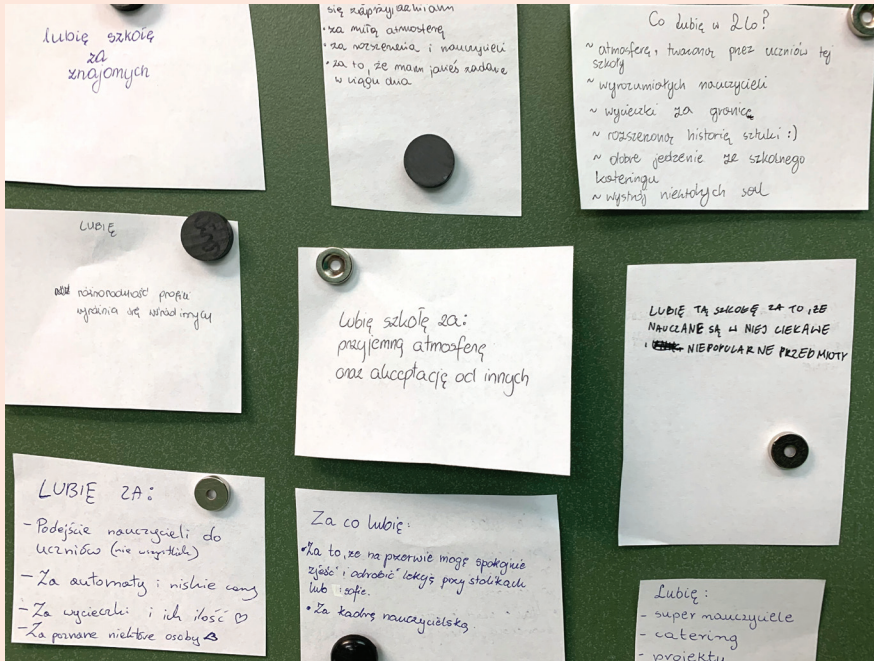 lubię szkołę
za
znajomych
się zaprzyjaźniłam
• za miłą atmosferę
• za rozszerzenia i nauczycieli
• za to, że mam jakieś zadanie
w ciągu dnia
Co lubię w 2 Lo?
~ atmosferę, tworzoną przez uczniów tej
szkoły
~ wyrozumiałych nauczycieli
~ wycieczki za granicę
~ rozszerzoną historię sztuki :)
~ dobre jedzenie ze szkolnego
kateringu
~ wystrój niektórych sal
LUBIĘ
różnorodność profili
wyróżnia się wśród innych
Lubię szkołę za:
przyjemną atmosferę
oraz akceptację od innych
LUBIĘ TĄ SZKOŁĘ ZA TO, ŻE
NAUCZANE SĄ W NIEJ CIEKAWE
I NIEPOPULARNE PRZEDMIOTY
LUBIĘ ZA:
- Podejście nauczycieli do
uczniów (nie wszystkich)
- Za automaty i niskie ceny
- Za wycieczki i ich ilość ♡
- Za poznane niektóre osoby
Za co lubię:
• Za to, że na przerwie mogę spokojnie
zjeść i odrobić lekcję przy stolikach
lub sofie.
• Za kadrę nauczycielską.
Lubię:
- super nauczyciele
- catering
- projekty